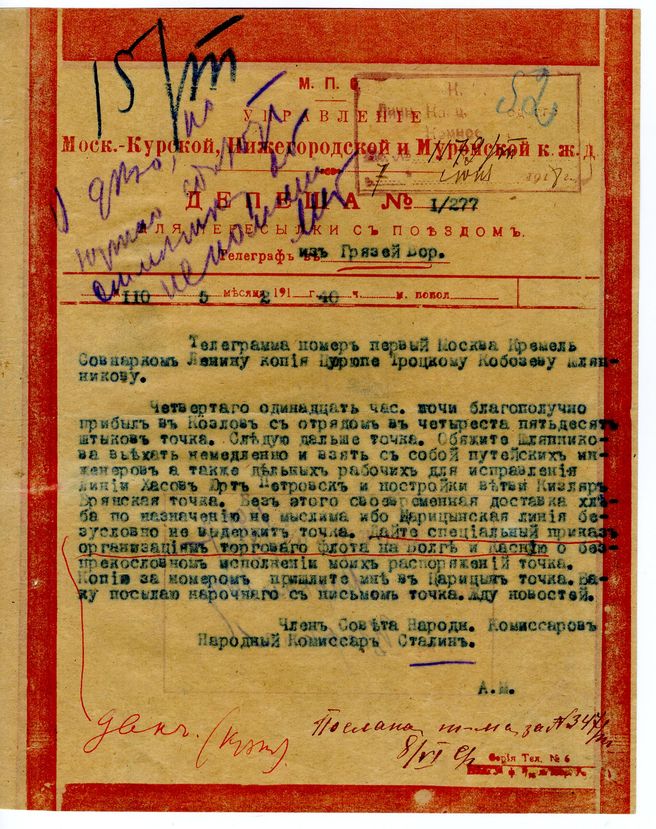 15/VI
52
М. П. С.
УПРАВЛЕНІЕ
Моск.-Курской, Нижегородской и Муромской ж. д.
7 1918 г.
ДЕПЕША № 1/277
ДЛЯ ПЕРЕСЫЛКИ СЪ ПОѢЗДОМЪ.
Телеграфъ въ изъ Грязей Вор.
110 5 мѣсяца 2 191 г. 40 ч. м. попол.
Телеграмма номеръ первый Москва Кремель
Совнаркомъ Ленину копія Цурюпе Троцкому Кобозеву Шляп-
никову.
Четвертаго одинадцать час. ночи благополучно
прибылъ въ Козловъ съ отрядомъ въ четыреста пятьдесятъ
штыковъ точка. Слѣдую дальше точка. Обяжите Шляпнико-
ва выѣхать немедленно и взять съ собой путейскихъ ин-
женеровъ а также дѣльныхъ рабочихъ для исправленія
линіи Хасовъ Юртъ Петровскъ и постройки вѣтви Кизляръ
Брянская точка. Безъ этого своевременная доставка хлѣ-
ба по назначенію не мыслима ибо Царицынская линія бе-
зусловно не выдержитъ точка. Дайте спеціальный приказъ
организаціямъ торговаго флота на Волгѣ и Каспію о без-
прекословномъ исполненіи моихъ распоряженій точка.
Копію за номеромъ пришлите мнѣ въ Царицынъ точка. Ба-
ку посылаю нарочнаго съ письмомъ точка. Жду новостей.
Членъ Совѣта Народн. Комиссаровъ
Народный Комиссаръ Сталинъ.
А.М.
Послана т-ма за № 347/
8/VI
Серія Тел. № 6